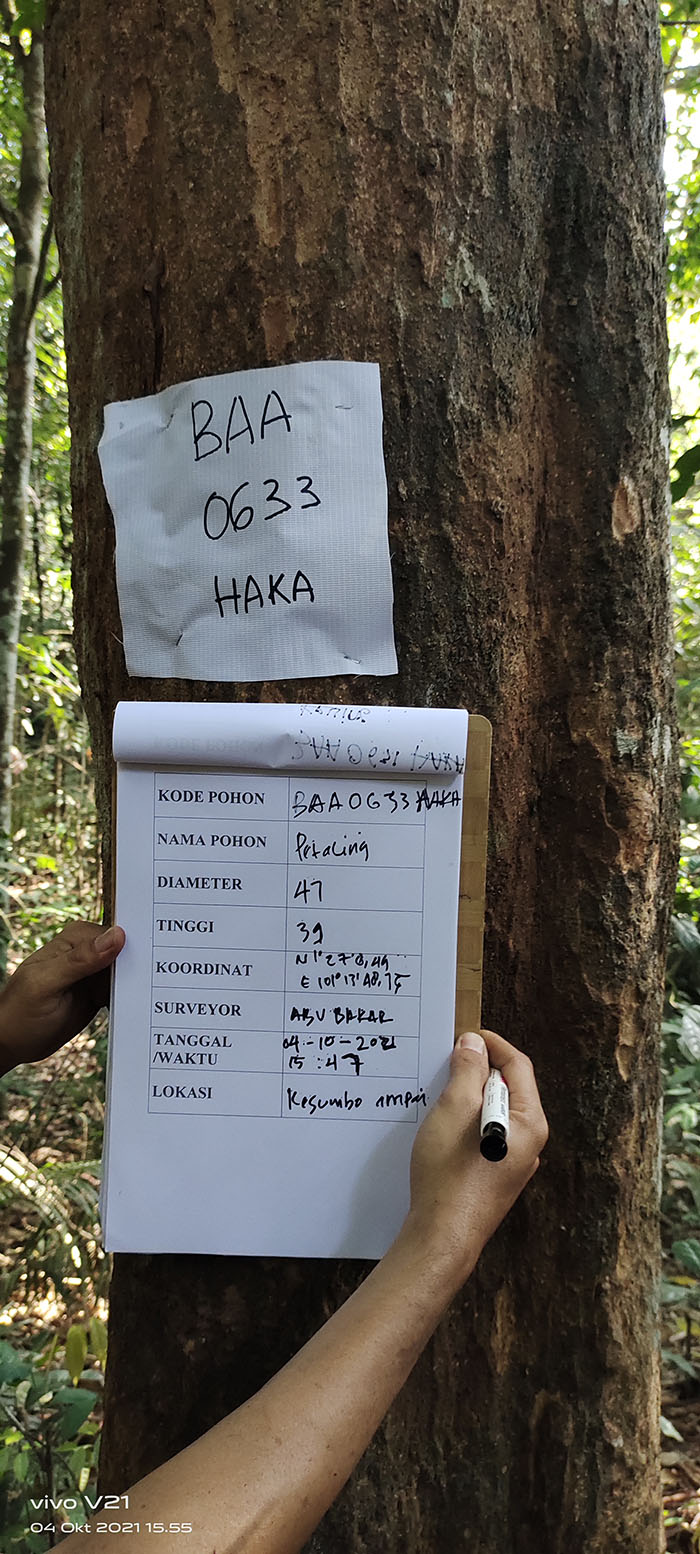 BAA
0633
HAKA
KODE POHON BAA 0633 HAKA
NAMA POHON Petaling
DIAMETER 47
TINGGI 39
KOORDINAT N 1° 27' 8,49"
E 101° 13' 48,75
SURVEYOR ABU BAKAR
TANGGAL 04-10-2021
/WAKTU 15:47
LOKASI Kesumbo ampai
vivo V21
04 Okt 2021 15.55